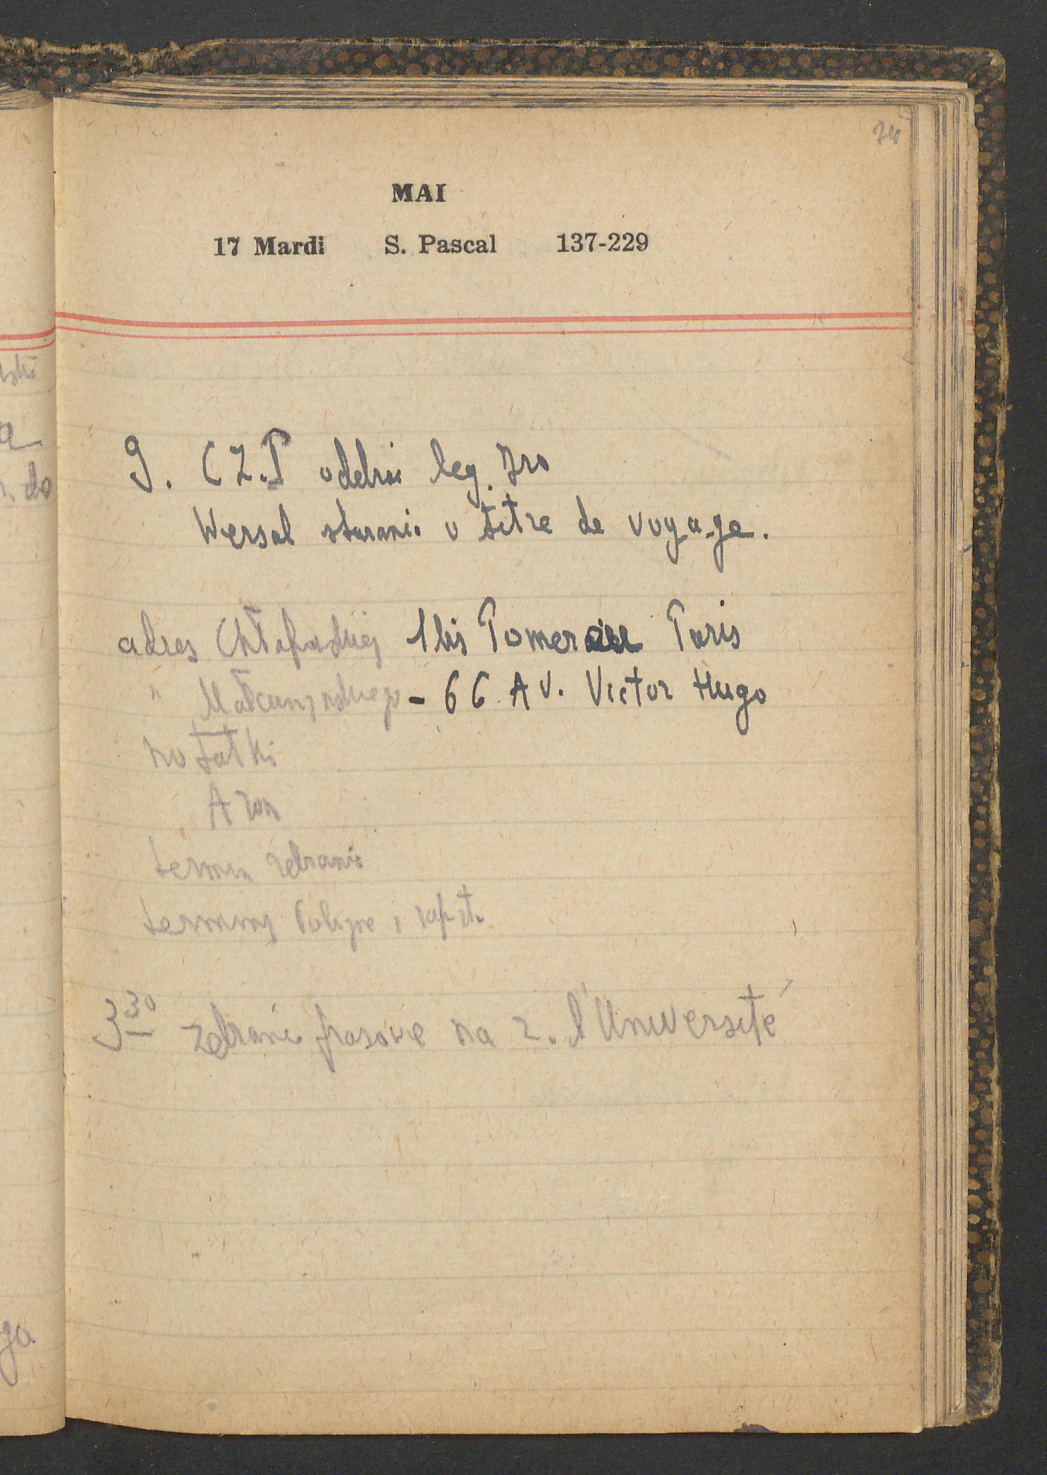 74
MAI
17 Mardi S. Pascal 137-229
9. CZ.P odebrać leg.
Wersal starania o titre de voyage.
adres Chłapowskiej 1 bis Pomereu Paris
" Małcużyńskiego - 66 Av. Victor Hugo
notatki
Aron
termin zebrania
terminy
3 30 zebranie prasowe na r. l'Université
do